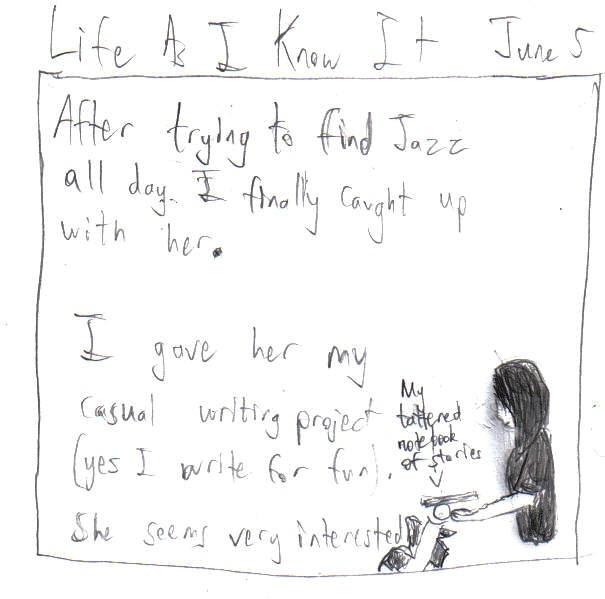 Life As I Know It June 5
After trying to find Jazz
all day. I finally caught up
with her.
I gave her my
casual writing project
(yes I write for fun).
She seems very interested
My
tattered
notebook
of stories